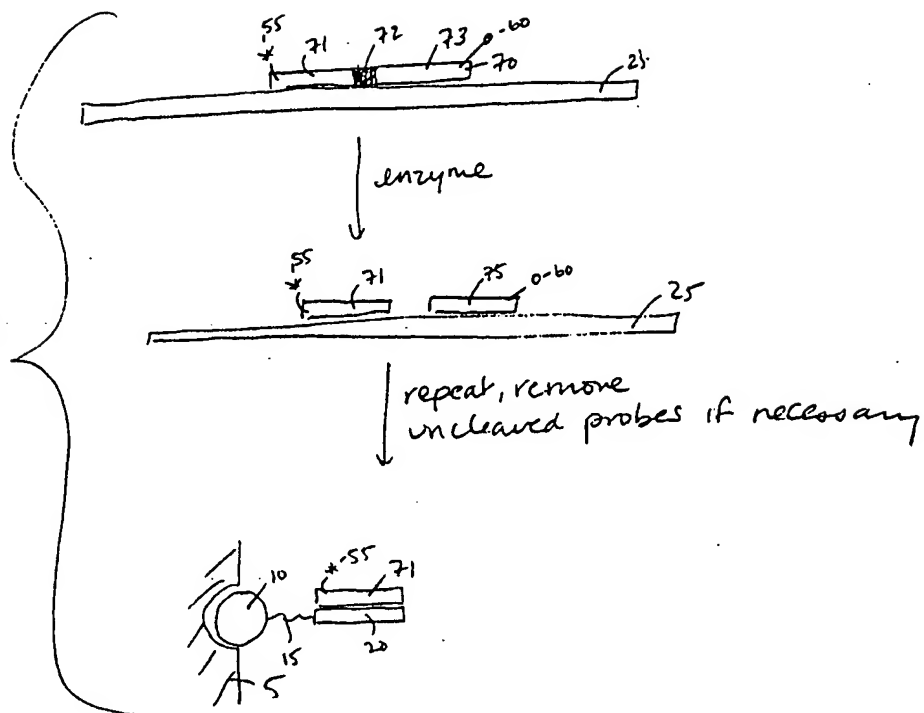 *55 71 72 73 0-60
70
25
enzyme
*55 71 75 0-60
25
repeat, remove
uncleaved probes if necessary
10 *-55 71
15 20
5